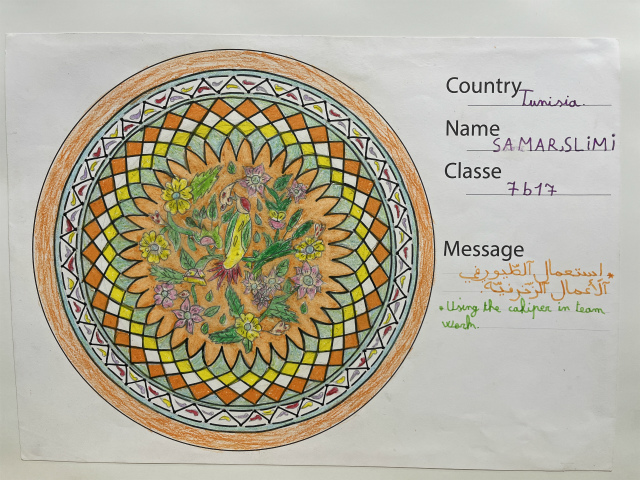 Country
Tunisia.
Name
SAMAR,SLiMi
Classe
7b17
Message
استعمال الكليوري في
الأعمال الزخرفية
• Using the caliper in team
work.